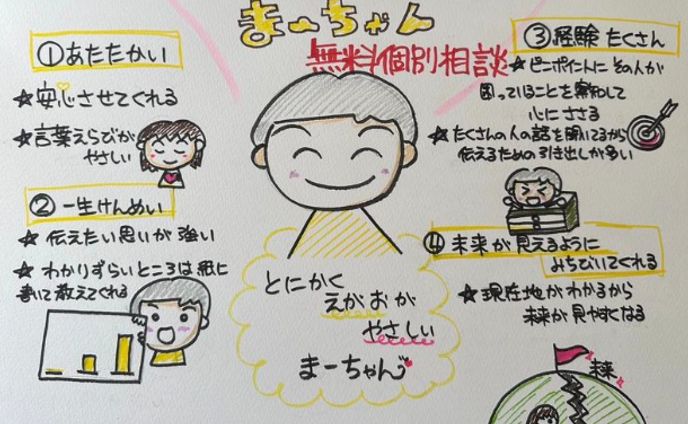 まーちゃん
無料個別相談
①あたたかい
★安心させてくれる
★言葉えらびが
やさしい
②一生けんめい
★伝えたい思いが強い
★わかりずらいところは紙に
書いて教えてくれる
とにかく
えがおが
やさしい
まーちゃん
③経験たくさん
★ピンポイントにその人が
困っていることを察知して
心にささる
★たくさんの人の話を聞いてるから
伝えるための引き出しが多い
④未来が見えるように
みちびいてくれる
★現在地がわかるから
未来が見やすくなる
未来